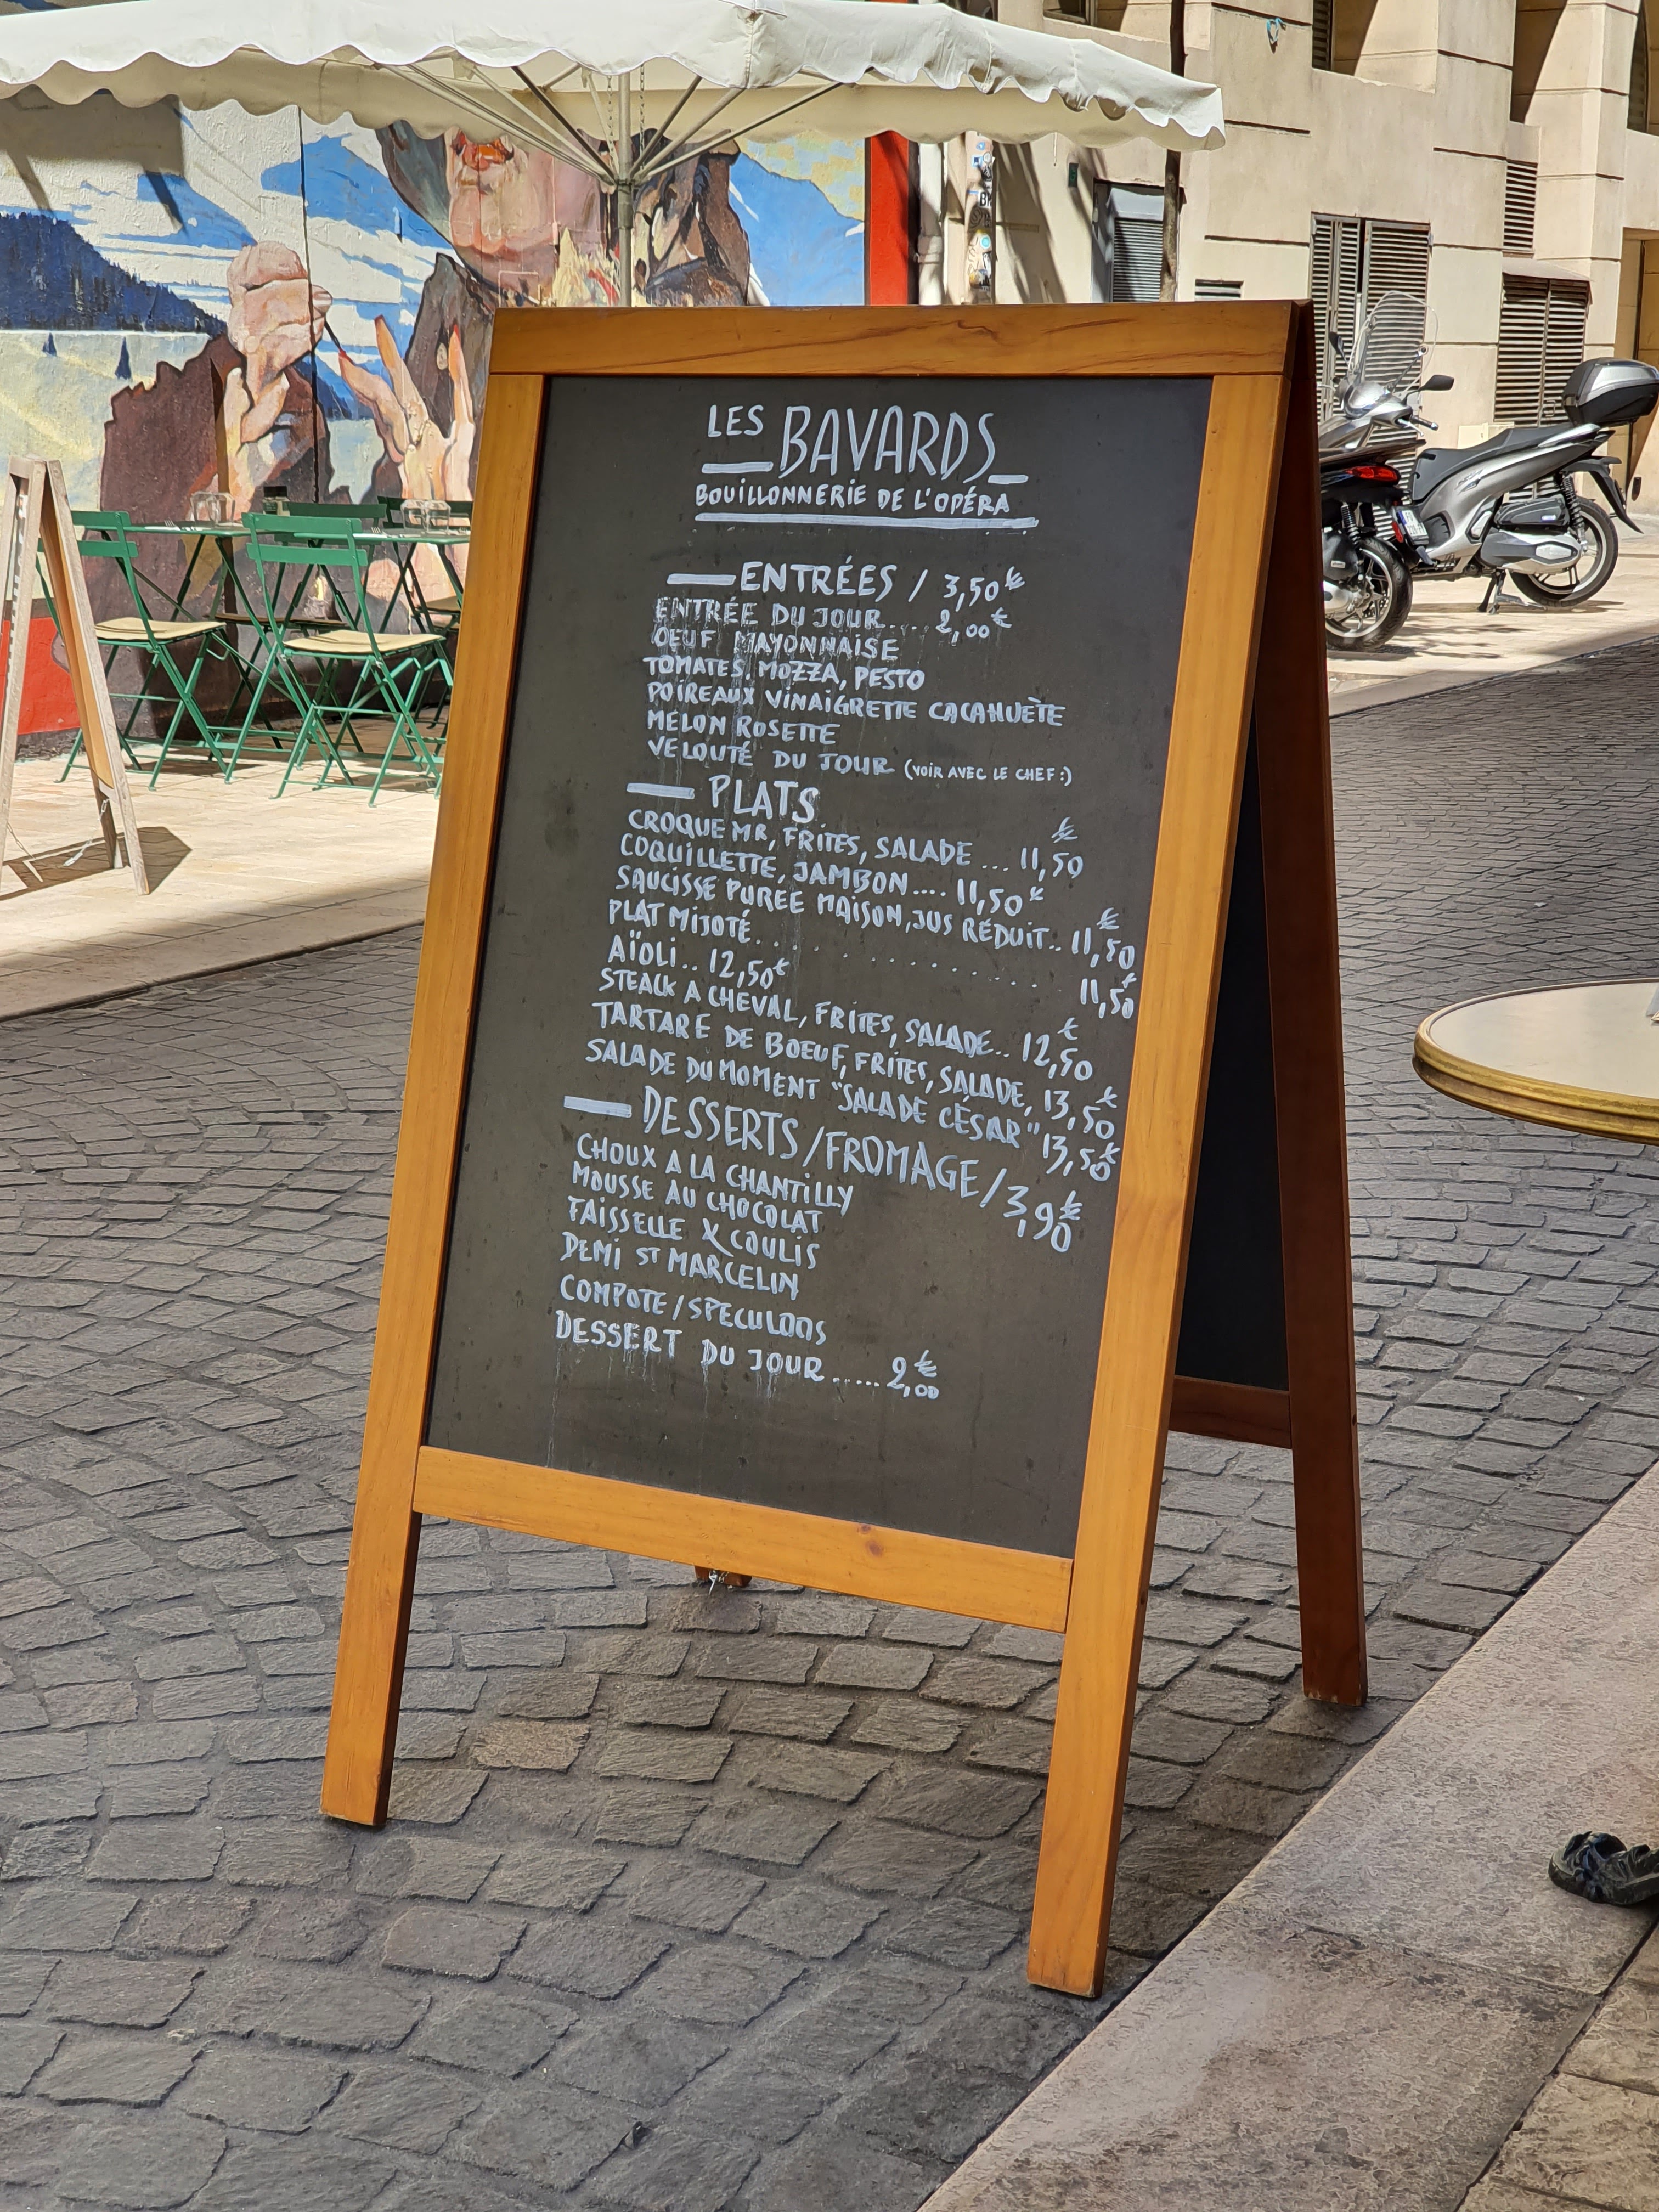 LES BAVARDS
BOUILLONNERIE DE L'OPÉRA
ENTRÉES / 3,50€
ENTRÉE DU JOUR.... 2,00€
OEUF MAYONNAISE
TOMATES, MOZZA, PESTO
POIREAUX VINAIGRETTE CACAHUÈTE
MELON ROSETTE
VELOUTÉ DU JOUR (VOIR AVEC LE CHEF:)
PLATS
CROQUE MR, FRITES, SALADE ... 11,50€
COQUILLETTE, JAMBON.... 11,50€
SAUCISSE PURÉE MAISON, JUS RÉDUIT.. 11,50€
PLAT MIJOTÉ................ 11,50€
AÏOLI.. 12,50€
STEACK A CHEVAL, FRITES, SALADE.. 12,50€
TARTARE DE BOEUF, FRITES, SALADE, 13,50€
SALADE DU MOMENT "SALADE CÉSAR" 13,50€
DESSERTS/FROMAGE/3,90€
CHOUX A LA CHANTILLY
MOUSSE AU CHOCOLAT
FAISSELLE & COULIS
DEMI ST MARCELIN
COMPOTE/SPECULOOS
DESSERT DU JOUR ..... 2,00€